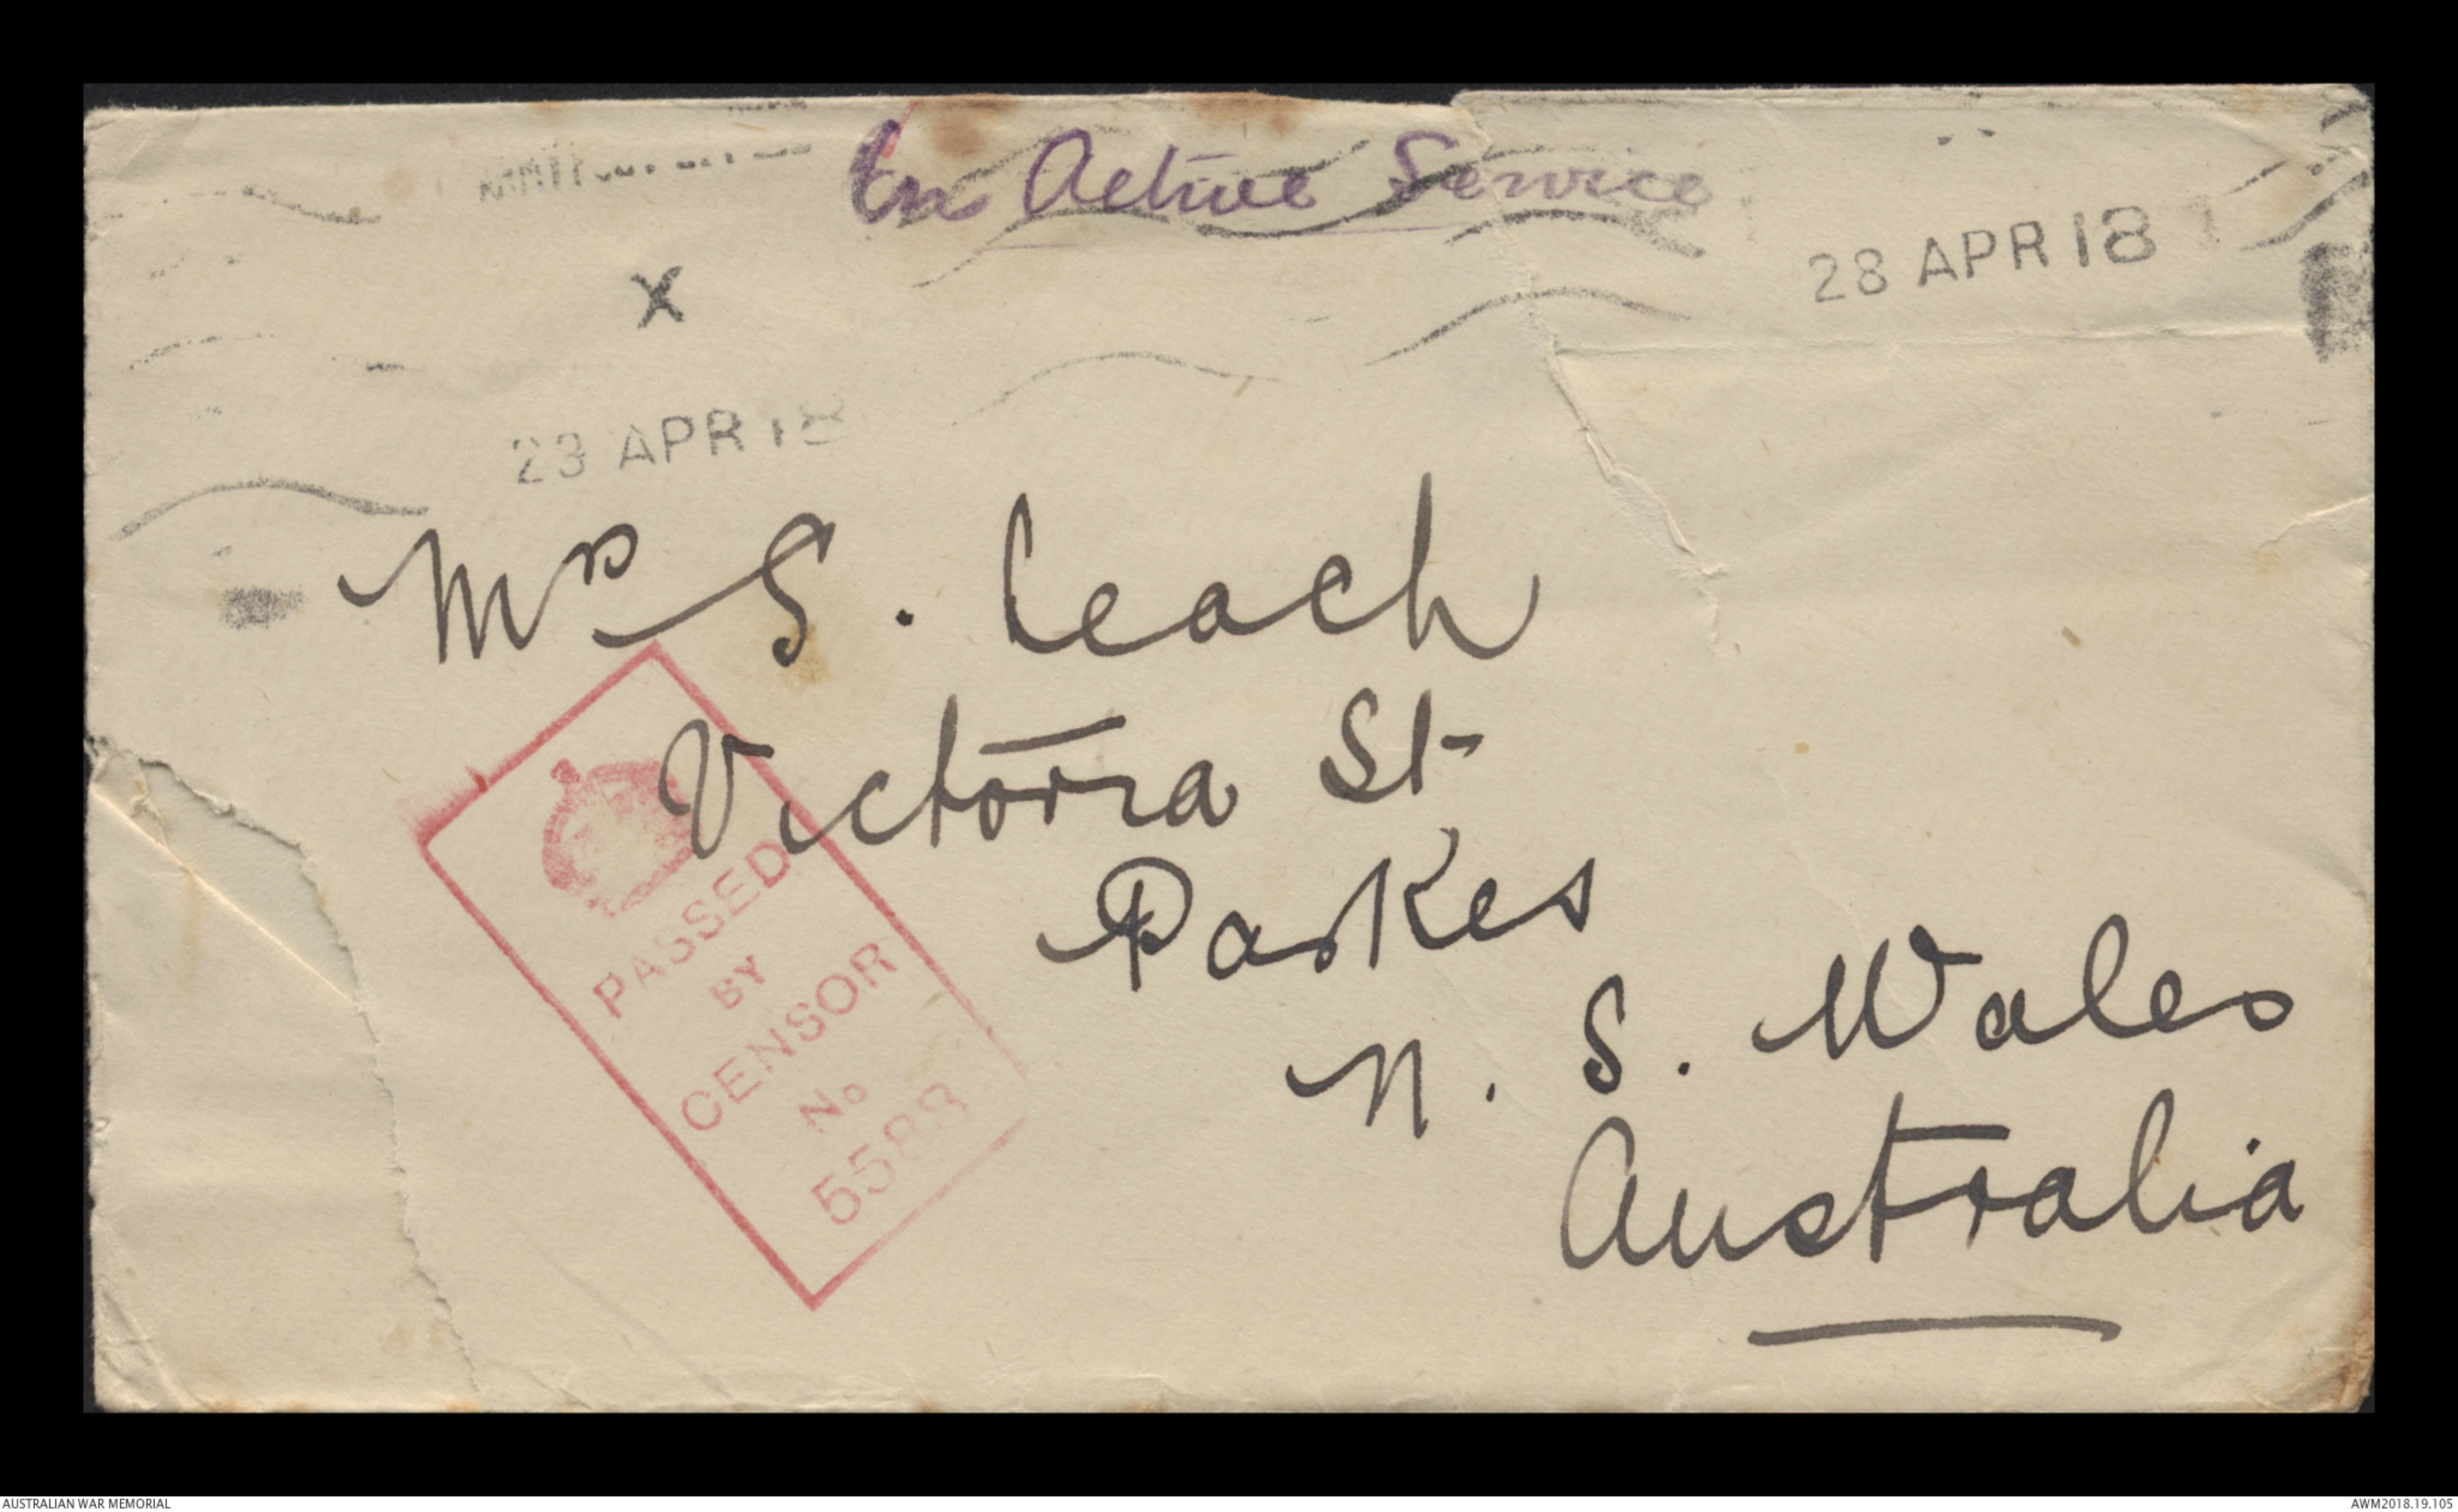 On Active Service
28 APR 18
X
APR 18
Mrs S. Leach
Victoria St
Parkes
N. S. Wales
Australia
PASSED
BY
CENSOR
No
5588
AUSTRALIAN WAR MEMORIAL
AWM2018.19.105